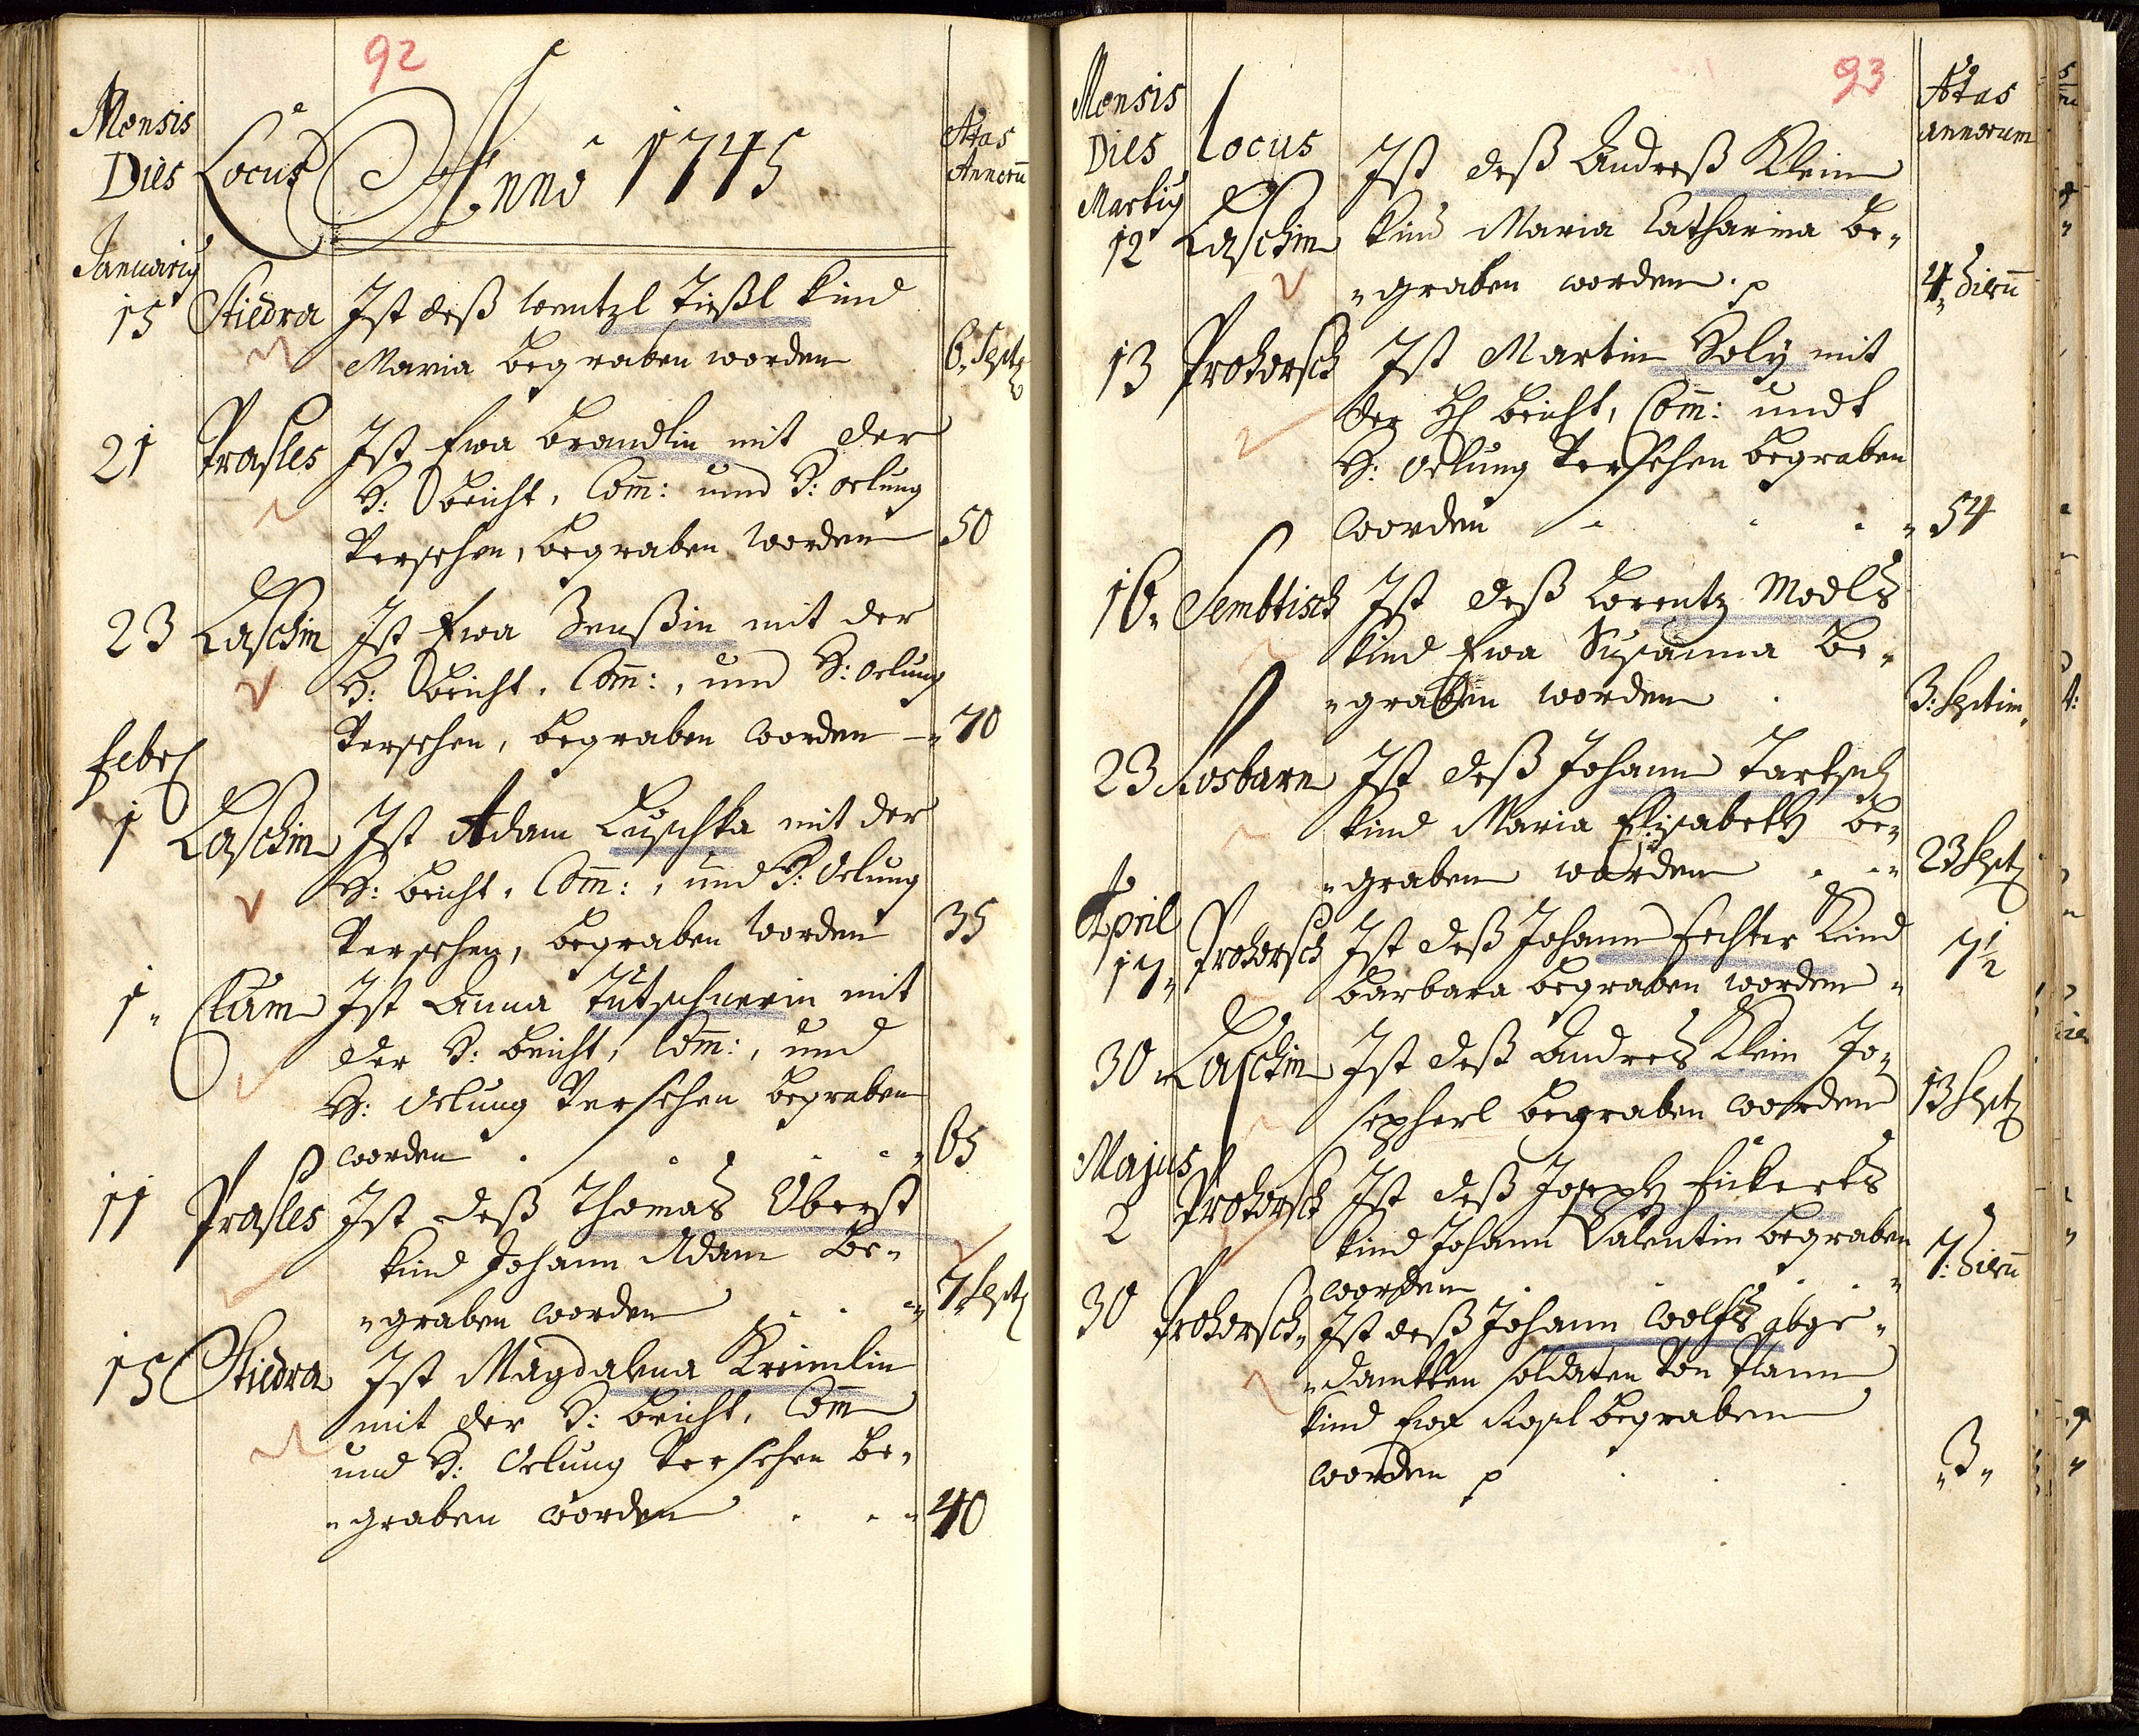 92
Mensis
Dies
Locus
Anno 1745
Ætas
Annorū
Januariy
15 Stiedra Ist deß Wentzl Tießl Kind
Maria begraben worden 6. Sept
21 Prasles Ist Eva Brandlin mit der
H: Beicht, Com̄: und H: Oelung
Versehen, begraben worden 50
23 Laschin Ist Eva Zenßin mit der
H: Beicht, Com̄:, und H: Oelung
Versehen, begraben worden 70
Febr
1 Laschin Ist Adam Luschka mit der
H: Beicht, Com̄:, und H: Oelung
Versehen, begraben worden 35
1. Clum Ist Anna Tutschnerin mit
der H: Beicht, Com̄:, und
H: Oelung Versehen begraben
worden 65
11 Prasles Ist deß Thomas Oberst
Kind Johann Adam be-
graben worden 7. Sept
15 Stiedra Ist Magdalena Kreimlin
mit der H: Beicht, Com̄
und H: Oelung Versehen be-
graben worden 40
93
Mensis
Dies
Locus
Ætas
annorum
Martiy
Ist deß Andreß Klein
12 Laschin Kind Maria Catharina be-
graben worden. p 4. dierū
13 Prohorsch Ist Martin Holy mit
der Hl Beicht, Com̄: undt
H: Oelung Versehen begraben
worden 54
16. Sembtisch Ist deß Lorentz Modls
Kind Eva Susanna be-
graben worden 3: Septim.
23 Kosbarn Ist deß Johann Tartsch
Kind Maria Elisabeth be-
graben worden 23 Sept
April
17. Prohorsch Ist deß Johann Fechter Kind
Barbara begraben worden 7 1/2
30. Laschin Ist deß Andres Klein Jo-
sepherl begraben worden 13 Sept
Majus
2 Prohorsch Ist deß Joseph Fickerts
Kind Johann Valentin begraben
worden 7: dierū
30 Prohorsch. Ist deß Johann Wolfs abge-
danktten Soldaten von Plann
Kind Eva Rosl begraben
worden p 3